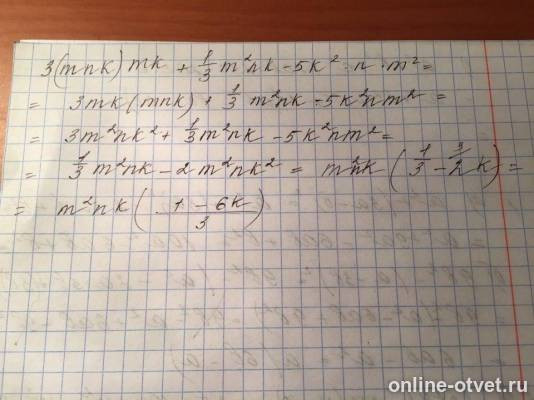 3(mnk)mk + 1/3 m²nk - 5k²·n·m² =
= 3mk(mnk) + 1/3 m²nk - 5k²nm² =
= 3m²nk² + 1/3 m²nk - 5k²nm² =
= 1/3 m²nk - 2m²nk² = m²nk (1/3 - 2k) =
= m²nk ( (1 - 6k)/3 )
online-otvet.ru